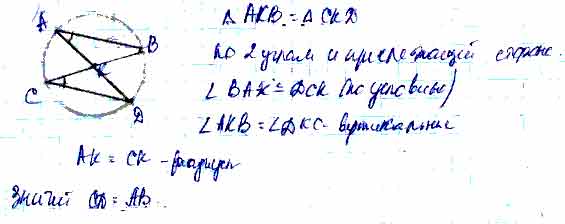 A
B
K
C
D
Δ AKB = Δ CKD
по 2 углам и прилежащей стороне.
∠ BAK = DCK (по условию)
∠AKB = ∠DKC - вертикальные
AK = CK - радиусы
Значит CD = AB